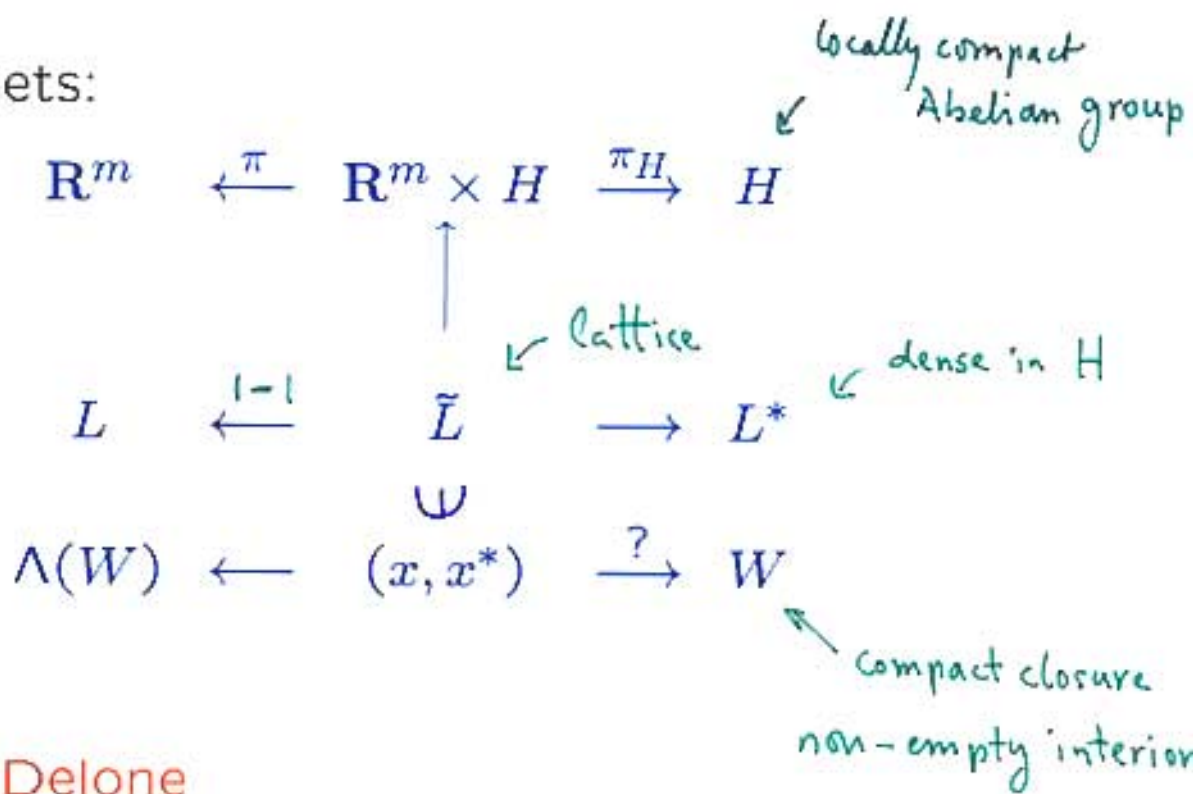 locally compact
Abelian group
ets:
R^m ←π R^m × H π_H→ H
lattice
dense in H
L ←1-1 L̃ → L*
∪|
Λ(W) ← (x, x*) ?→ W
compact closure
non-empty interior
Delone